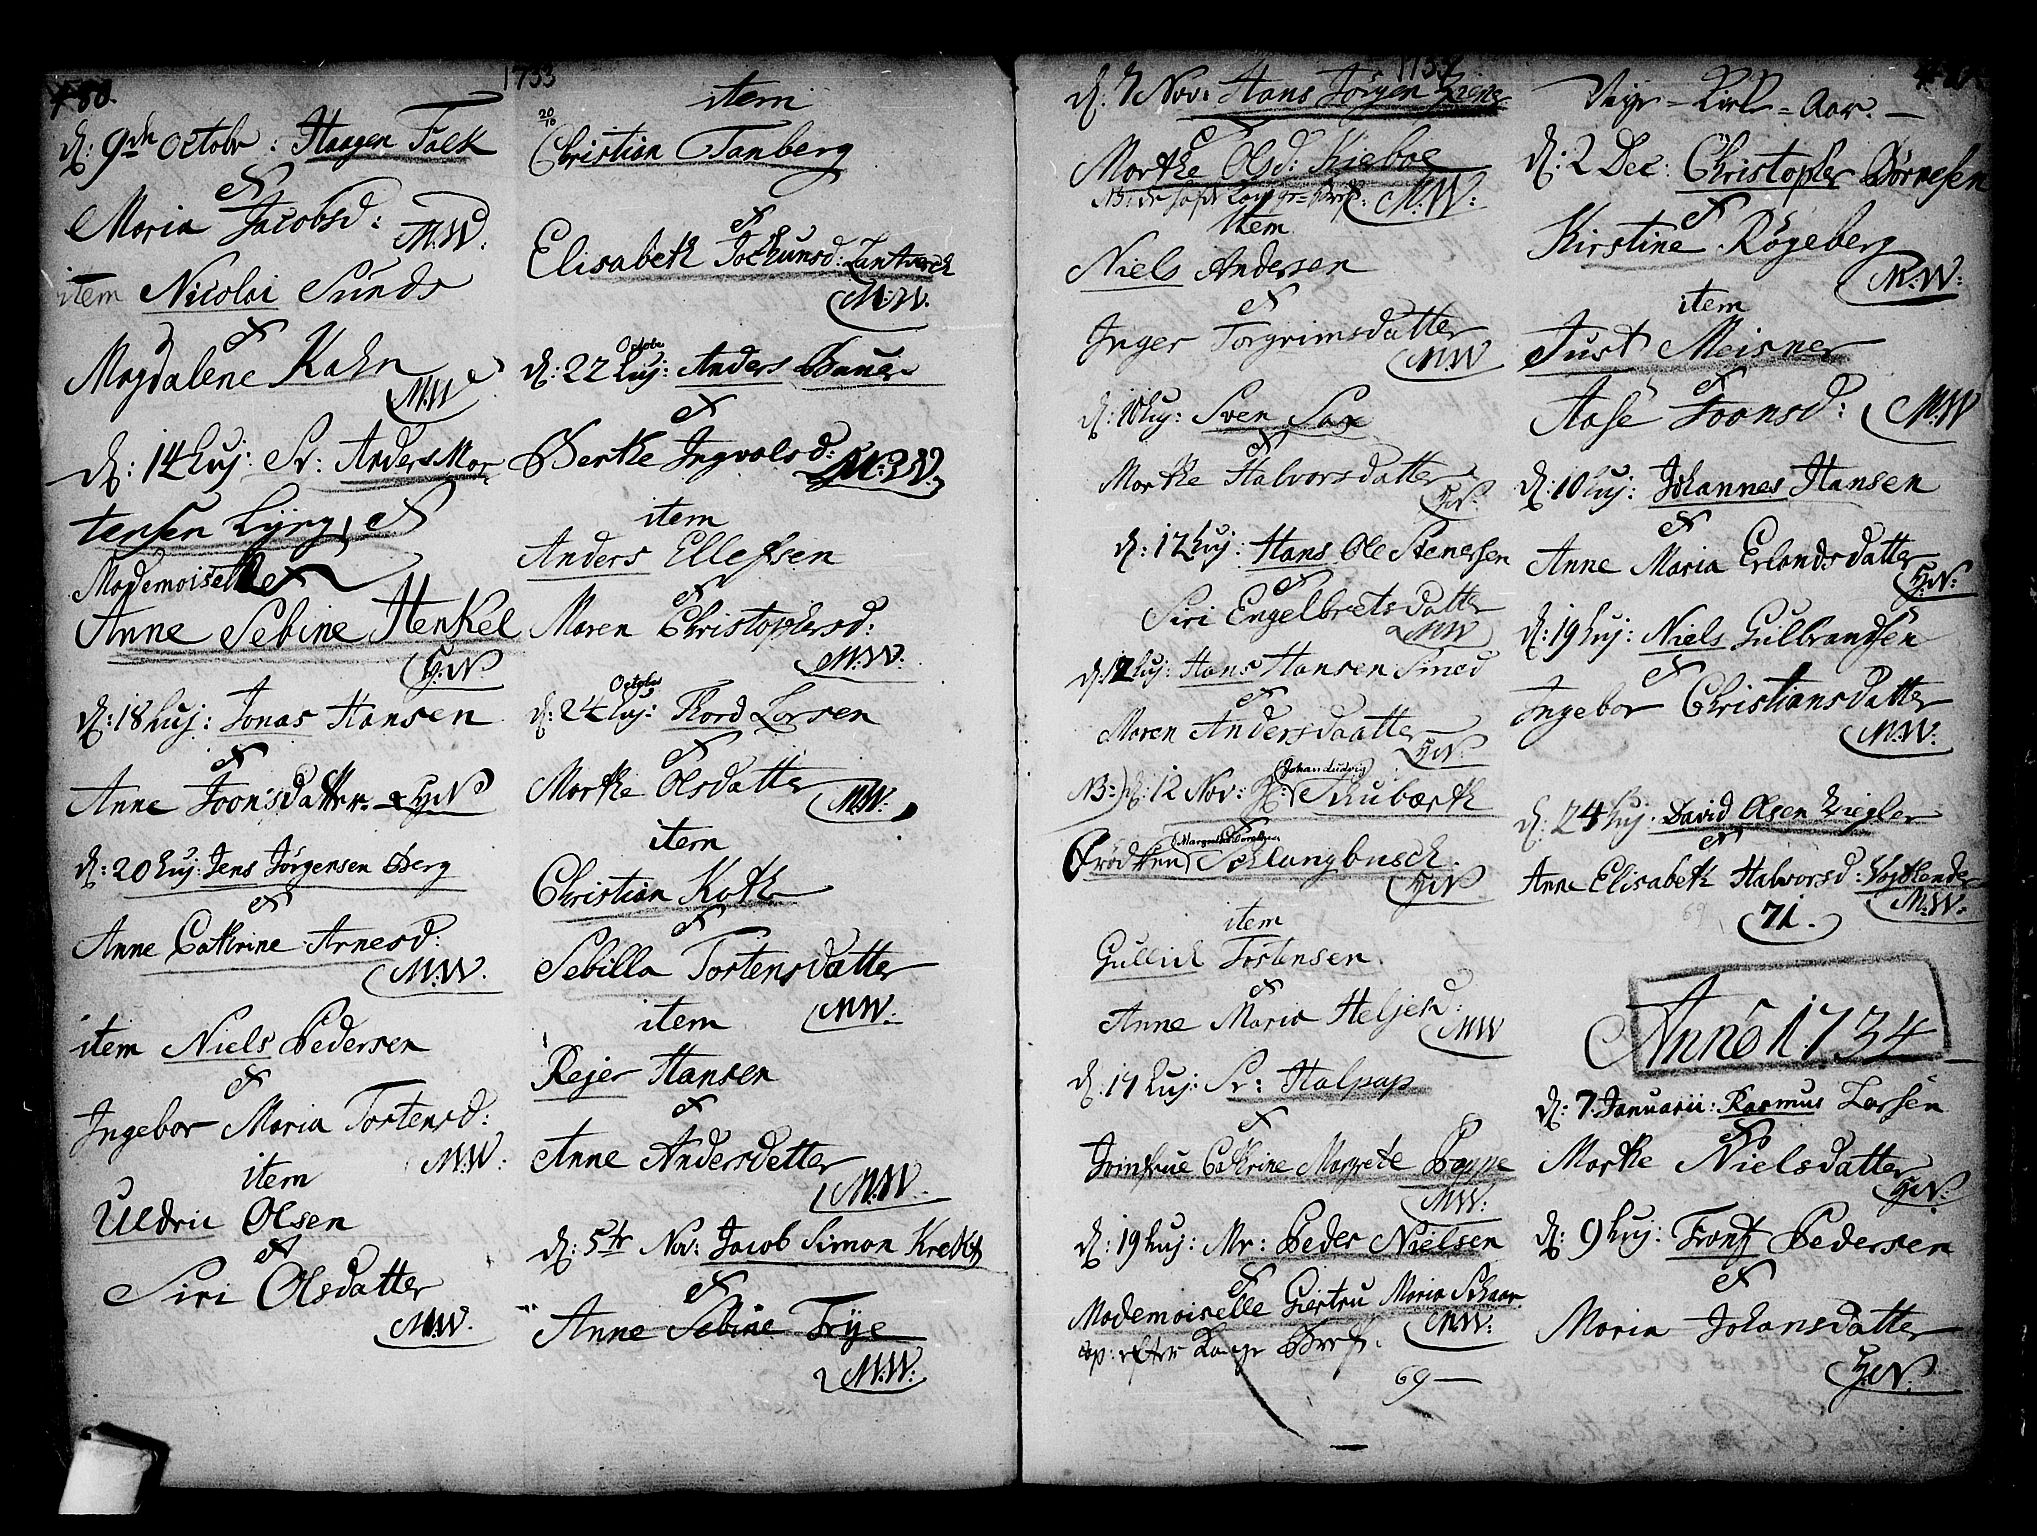 480.
1733
d: 9de Octobr: Haagen Falk
et
Maria Jacobsd: M.W.
item Nicolai Sunds
et
Magdalene Kahn
M.W
d: 14 huj: Sr: Anders Mor
tensen Lyng, et
Mademoiselle
Anne Sebine Henkel
H:N
d: 18 huj: Jonas Hansen
et
Anne Joonsdatter H:N
d: 20 huj: Jens Jörgensen Berg
et
Anne Cathrine Arnesd:
M.W.
item Niels Pedersen
et
Ingebor Maria Tostensd:
M.W:
item
Uldric Olsen
et
Siri Olsdatter
M.W.
item
20/10
Christian Tanberg
et
Elisabeth Jochumsd: Landtwerck
M.W.
d: 22 Octobr huj: Anders
et
Berthe Ingvolsd:
M:W.
item
Anders Ellefsen
et
Maren Christophersd:
M.W:
d: 24 October huj: Thord Larsen
et
Marthe Olsdatter
M.W:
item
Christian Koth
et
Sebilla Tostensdatter
M.W:
item
Rejer Hansen
et
Anne Andersdatter
M.W.
d: 5te Nov: Jacob Simon Kreft
et
Anne Sebine Frye
M.W:
1733
d: 7 Nov: Hans Jörgen
et
Marthe Olsd: Kieboe
M.W:
item
Niels Andersen
et
Inger Torgrimsdatter
M.W
d: 10 huj: Sven Sax
et
Marthe Halvorsdatter
H:N.
d: 12 huj: Hans Ole Stenersen
et
Siri Engelbretsdatter
M.W
d: 12 huj: Hans Hansen Smed
et
Maren Andersdaatter
H:N
NB: d: 12 Nov: Hr: (Johan Ludvig) Schubærth
et
Frödken (Margretha Dorothea) Schlangbusch.
H:N
item
Gullich Tostensen
et
Anne Maria Heljesd:
M.W
d: 17 huj: Sr: Halpap
et
Jomfrue Cathrine Margrete Poppe
M.W:
d: 19 huj: Mr: Peder Nielsen
et
Mademoiselle Giertru Maria Schaar
cop: efter Konge Bref. M.W:
69
Nye = Kirk = Aar.
d: 2 Dec: Christopher Börnesen
et
Kirstine Rögeberg
M.W:
item
Just Meisner
et
Aase Joonsd: M.W
d: 10 huj: Johannes Hansen
et
Anne Maria Erlandsdatter
H:N:
d: 19 huj: Niels Gulbrandsen
et
Ingebor Christiansdatter
M.W:
d: 24 huj: David Olsen Ziegler
et
Anne Elisabeth Halvorsd: Vogtlender
M.W:
69
71.
Anno 1734
d: 7 Januarii: Rasmus Larsen
et
Marthe Nielsdatter
H:N:
d: 9 huj: Frantz Pedersen
et
Maria Johansdatter
H:N: